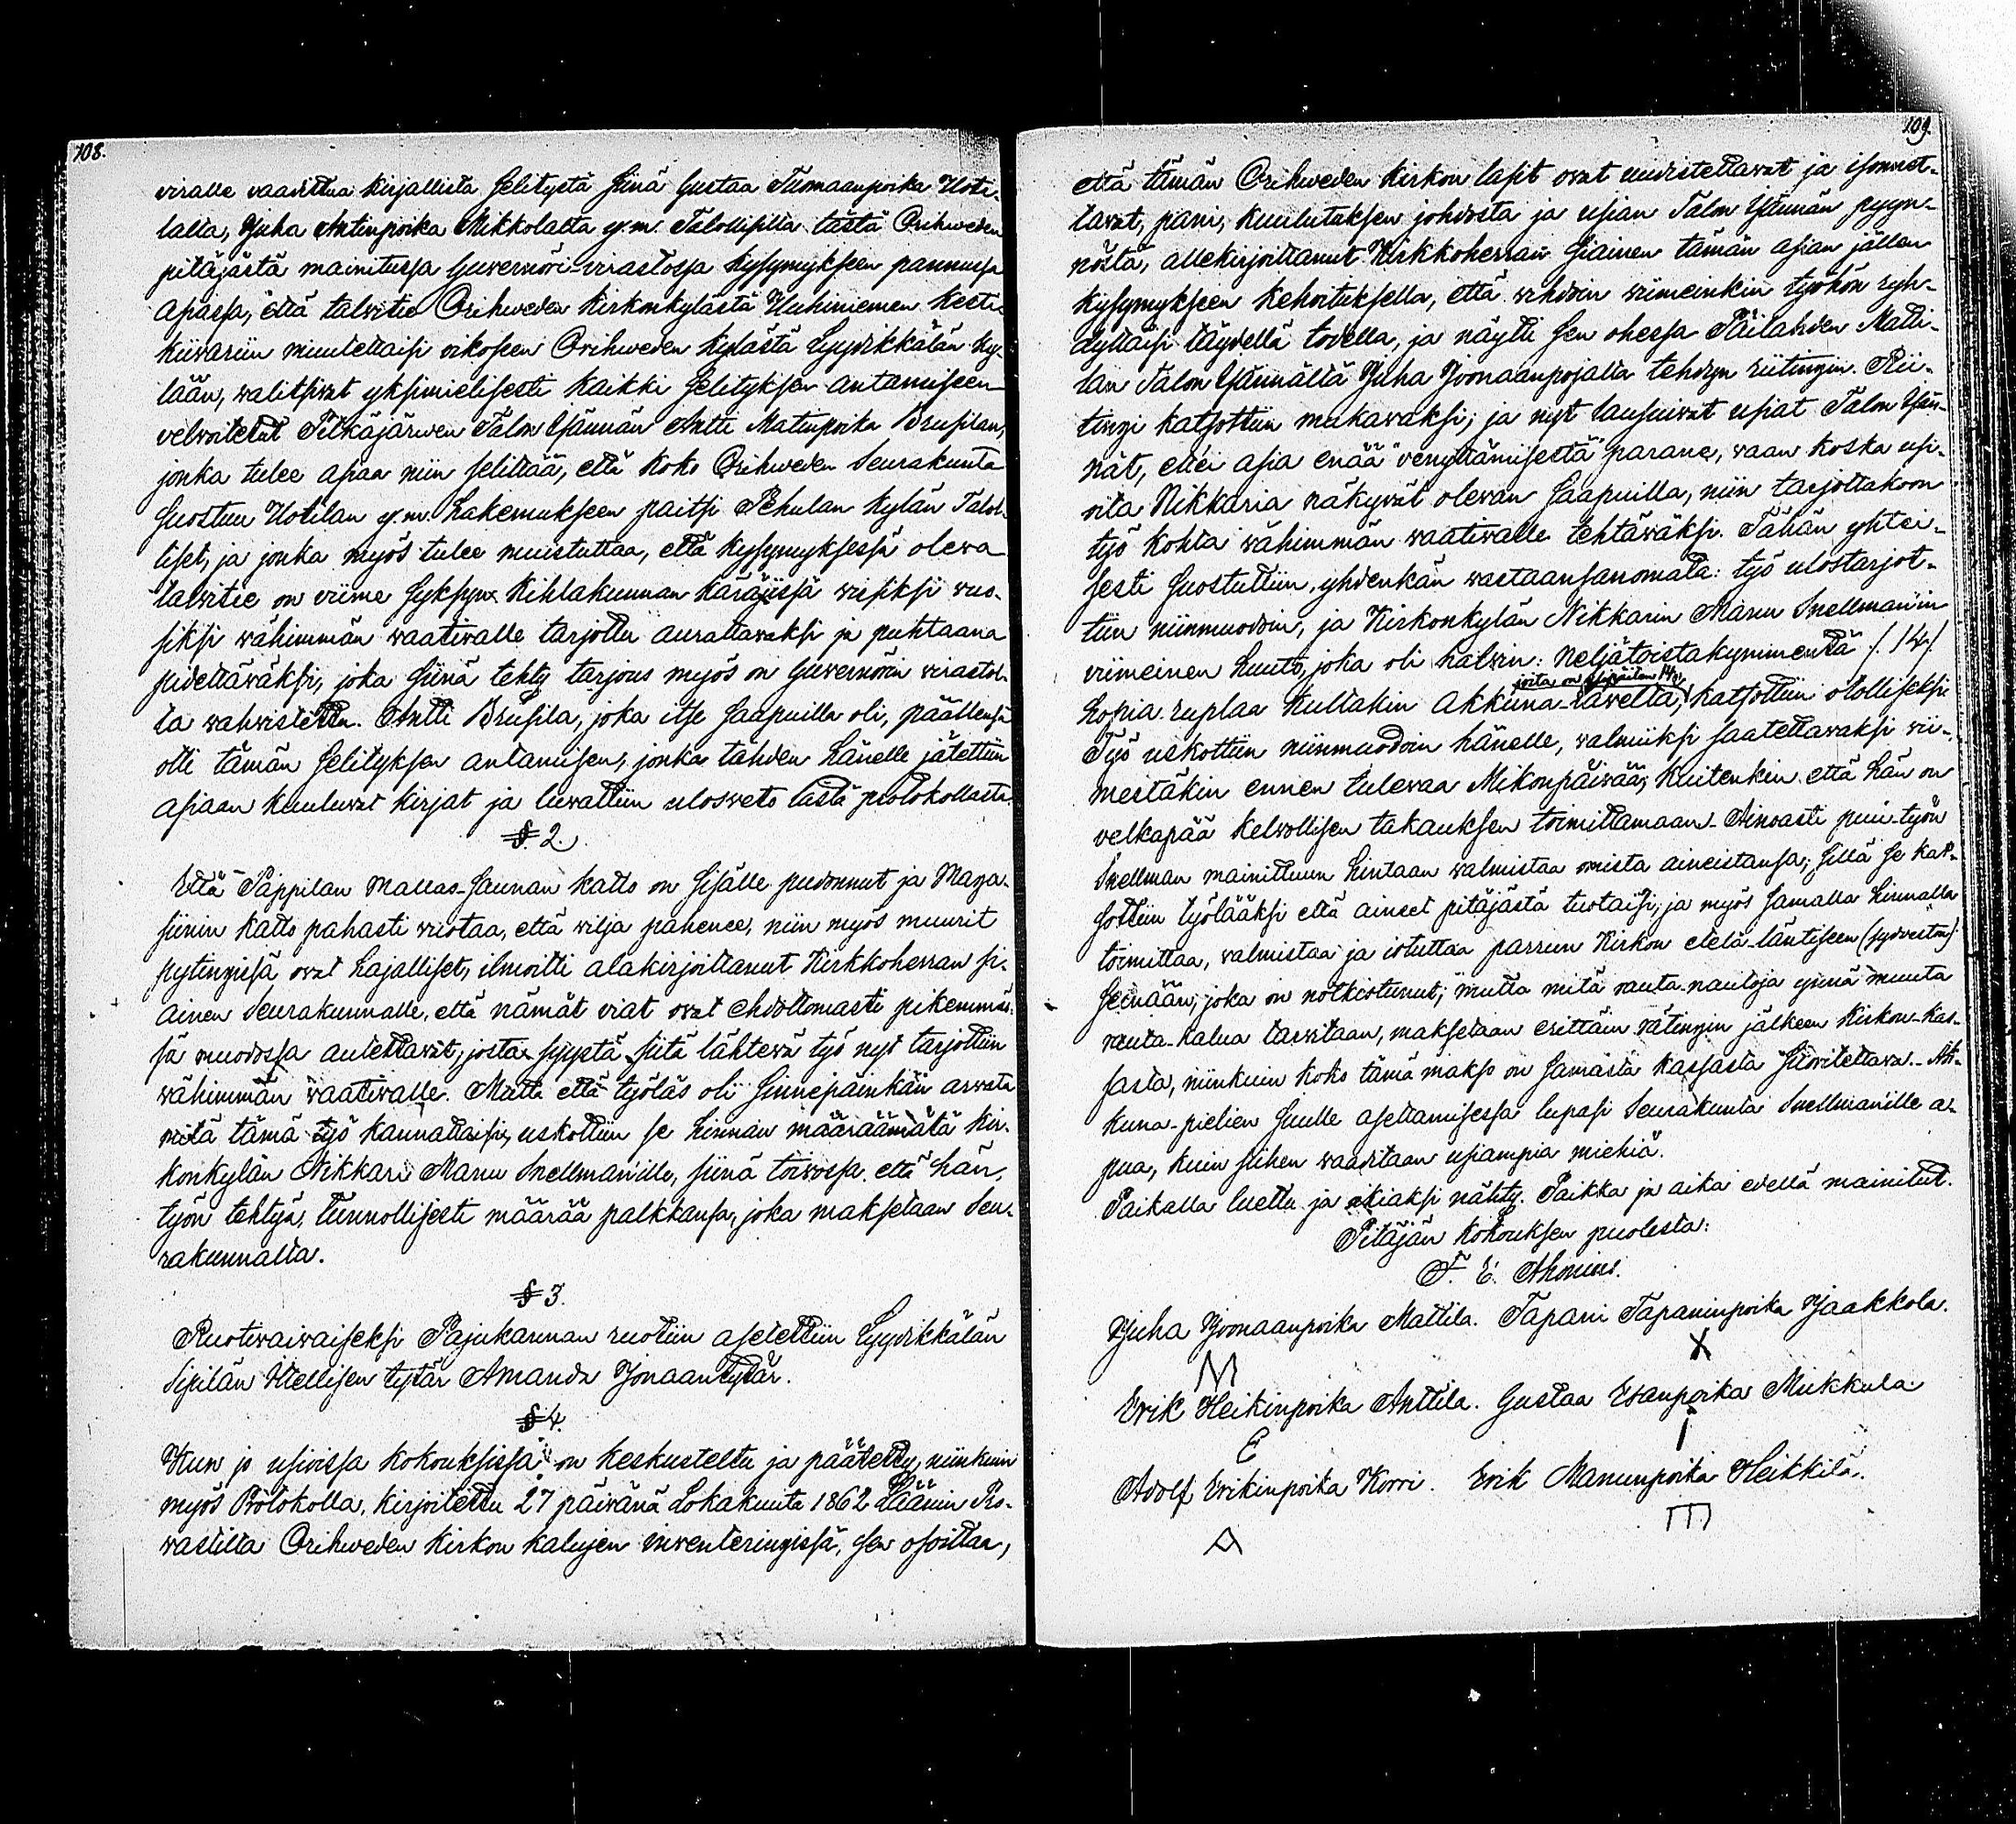 108.
viralle vaadittua kirjallista selitystä siinä Gustaa Tuomaanpoika Uoti-
lalta, Juha Antinpoika Mikkolalta y.m. Talollisilta tästä Orihweden
pitäjästä mainitussa Guvernöri-virastossa kysymykseen pannussa
apassa, että talvitie Orihweden kirkonkylästä Huhiniemen kesti-
kiivariin muutettaisi oikoseen Orihweden kylästä Lyydikkälän ky-
lään, walitsivat yksimielisesti kaikki selityksen antamiseen
velvoitetut Pitkäjärwen Talon Isännän Antti Matinpoika Brusilan,
jonka tulee asiaa niin selittää, että koko Orihweden Seurakunta
suostuu Uotilan y.m. hakemukseen paitsi Pehulan kylän Talol-
liset, ja jonka myös tulee muistuttaa, että kysymyksessä oleva
talvitie on viime syksyn Kihlakunnan käräjissä viisiksi vuo-
siksi wähimmän waativalle tarjottu aurattavaksi ja puhtaana
pidettäväksi, joka siinä tehty tarjous myös on Guvernörin virastol-
ta wahvistettu. Antti Brusila, joka itse saapuilla oli, päällensä
otti tämän selityksen antamisen, jonka tähden hänelle jätettiin
asiaan kuuluvat kirjat ja luvattiin ulosveto tästä protokollasta.
§. 2.
Että Pappilan Mallas-saunan katto on sisälle pudonnut ja Maga-
siinin katto pahasti vuotaa, että vilja pahenee, niin myös muurit
pytingissä ovat hajalliset, ilmoitti alakirjoittanut Kirkkoherran si-
ainen Seurakunnalle, että nämät viat ovat ehdottomasti pikemmäs-
sä muodossa autettavat, josta syystä siitä lähtevä työ nyt tarjottiin
wähimmän waativalle. Mutta että työläs oli sinnepäinkän arvata
mitä tämä työ kannattaisi, uskottiin se hinnan määräämätä kir-
konkylän Nikkari Manu Snellman'ille, siinä toivossa, että hän,
työn tehtyä, tunnollisesti määrää palkkansa, joka maksetaan Seu-
rakunnalta.
§ 3.
Ruotivaivaiseksi Pajukannan ruotiin asetettiin Lyydikkälän
Sipilän Itellisen tytär Amanda Jonaantytär.
§ 4.
Kun jo usioissa kokouksissa on keskusteltu ja päätetty, niinkuin
myös Protokolla, kirjoitettu 27 päivänä Lokakuuta 1862 Läänin Ro-
wastilta Orihweden kirkon kalujen inventeringissä, sen osoittaa,
109.
että tämän Orihweden kirkon lasit ovat uudistettavat ja isonnet-
tavat, pani, kuulutuksen johdosta ja usian Talon Isännän pyyn-
nöstä, allekirjoittanut Kirkkoherran siainen tämän asian jällen
kysymykseen kehoituksella, että vihdoin viimeinkin työhön ryh-
dyttäisi täydellä todella, ja näytti sen ohessa Päilahden Matti-
lan Talon Isännältä Juha Joonaanpojalta tehdyn riitingin. Rii-
tingi katsottiin mukavaksi; ja nyt lausuivat usiat Talon Isän-
nät, ettei asia enää venyttämisestä parane, vaan koska usi-
oita Nikkaria näkyvät olevan saapuilla, niin tarjottakoon
työ kohta wähimmän waativalle tehtäväksi. Tähän yhtei-
sesti suostuttiin, yhdenkän vastaansanomata: työ ulostarjot-
tiin niinmuodoin, ja Kirkonkylän Nikkarin Manu Snellman'in
viimeinen huuto, joka oli halvin: Neljätoistakymmentä /. 14 /.
hopia ruplaa kultakin akkuna-lävelta, joita on katsottiin otolliseksi
Työ uskottiin niinmuodoin hänelle, valmiiksi saatettavaksi vii-
mestäkin ennen tulevaa Mikonpäivää, kuitenkin että hän on
velkapää kelvollisen takauksen toimittamaan. Ainoasti puu-työn
Snellman mainittuun hintaan walmistaa omista aineistansa, sillä se kat-
sottiin työlääksi että aineet pitäjästä tuotaisi, ja myös samalla hinnalla
toimittaa, valmistaa ja istuttaa parrun Kirkon etelä-läntiseen (sydvestra)
seinään, joka on notkistunut; mutta mitä rauta-nauloja ynnä muuta
rauta-kalua tarvitaan, maksetaan erittäin rätingin jälkeen kirkon-kas-
sasta, niinkuin koko tämä makso on samasta kassasta suoritettava. Ak-
kuna-pielien suulle asettamisessa lupasi Seurakunta Snellman'ille a-
pua, kuin siihen vaaditaan usiampia miehiä.
Paikalla luettu ja oikiaksi nähty. Paikka ja aika edellä mainitut.
Pitäjän kokouksen puolesta:
F. E. Ahonius.
Juha Joonaanpoika Mattila. Tapani Tapaninpoika Jaakkola.
M X
Erik Heikinpoika Anttila. Gustaa Esanpoika Mikkula
E
Adolf Erikinpoika Korri. Erik Manunpoika Heikkilä.